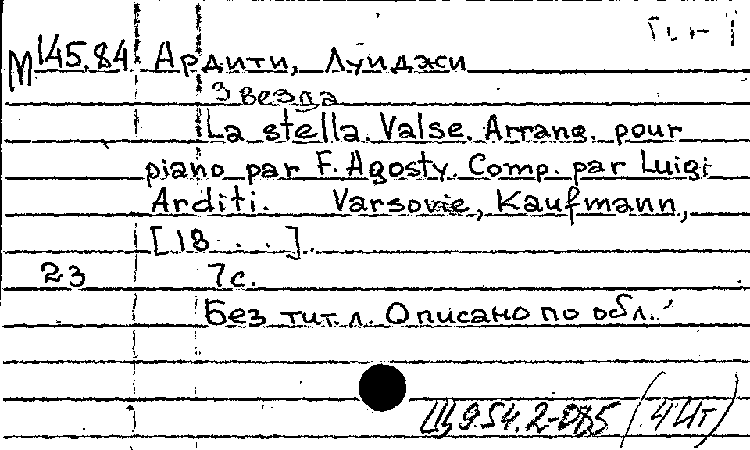 М 145.84 Ардити, Луиджи
Звезда
La stella. Valse. Arrang. pour
piano par F. Agosty. Comp. par Luigi
Arditi. Varsovie, Kaufmann,
[18 . . ].
23 7с.
Без тит. л. Описано по обл.
Щ954.2-085 (4Ит)